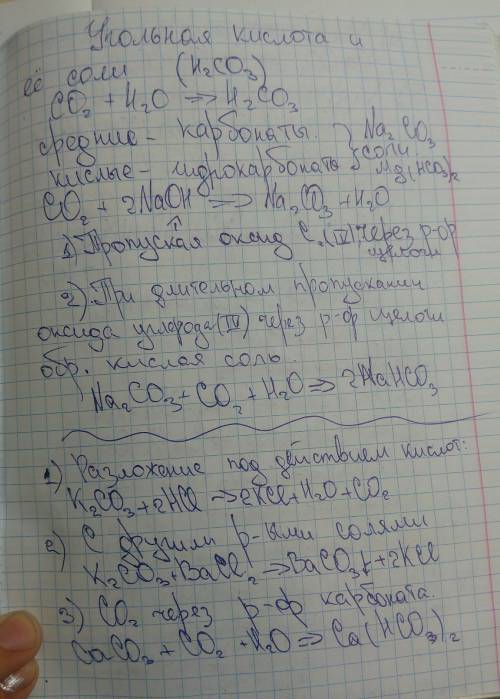 Угольная кислота и
её соли (H₂CO₃)
CO₂ + H₂O => H₂CO₃
средние - карбонаты. } Na₂CO₃
соли
кислые - гидрокарбонаты Mg(HCO₃)₂
CO₂ + 2NaOH => Na₂CO₃ + H₂O
1) Пропуская оксид C (IV) через р-ор
щелочи
2) При длительном пропускании
оксида углерода (IV) через р-ор щелочи
обр. кислая соль.
Na₂CO₃ + CO₂ + H₂O => 2NaHCO₃
1) Разложение под действием кислот:
K₂CO₃ + 2HCl => 2KCl + H₂O + CO₂
2) С другими р-ыми солями
K₂CO₃ + BaCl₂ => BaCO₃↓ + 2KCl
3) CO₂ через р-ор карбоната.
CaCO₃ + CO₂ + H₂O => Ca(HCO₃)₂